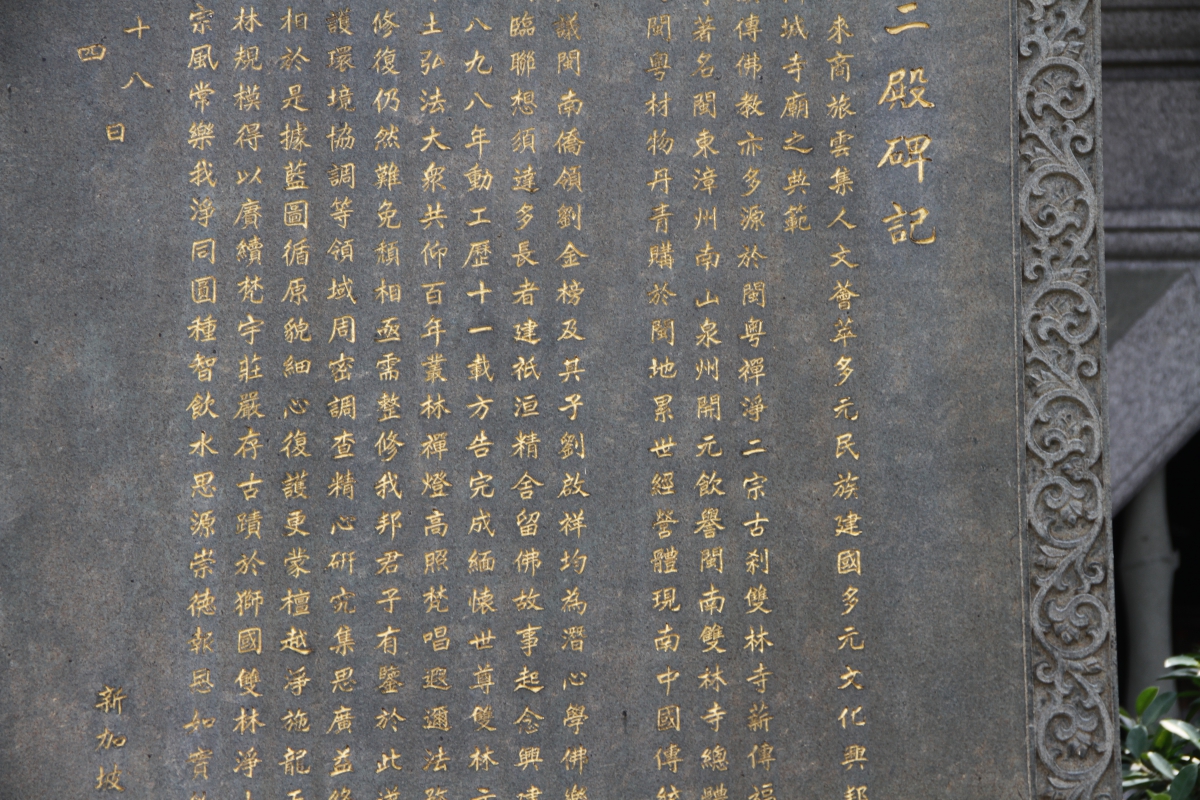 二殿碑記
來商旅雲集人文薈萃多元民族建國多元文化興邦
城寺廟之典範
傳佛教亦多源於閩粵禪淨二宗古剎雙林寺薪傳福
著名閩東漳州南山泉州開元飲譽閩南雙林寺總體
閩粵材物丹青購於閩地累世經營體現南中國傳統
議閩南僑領劉金榜及其子劉啟祥均為潛心學佛樂
臨聯想須達多長者建祇洹精舍留佛故事起念興建
八九八年動工歷十一載方告完成緬懷世尊雙林
土弘法大眾共仰百年叢林禪燈高照梵唱遐邇法務
修復仍然難免頹相亟需整修我邦君子有鑒於此
護環境協調等領域周密調查精心研究集思廣益修
相於是據藍圖循原貌細心復護更蒙檀越淨施龍天
林規模得以賡續梵宇莊嚴存古蹟於獅國雙林淨
宗風常樂我淨同圓種智飲水思源崇德報恩如實
十八日
四
新加坡